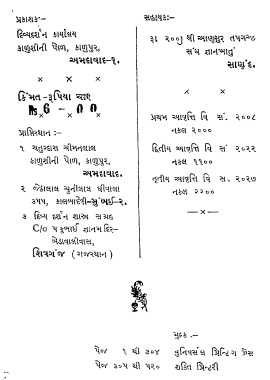 પ્રકાશક:-
દિવ્યદર્શન કાર્યાલય
કાળુશીની પોળ, કાળુપુર,
અમદાવાદ-૧.
× × ×
કિંમત-રૂપિયા
Rs 6 - 00
પ્રાપ્તિસ્થાન :-
૧ ચતુરદાસ ચીમનલાલ
કાળુશીની પોળ, કાળુપુર,
અમદાવાદ.
૨ જેઠાલાલ ચુનીલાલ ઘીવાલા
૩૫૫, કાલબાદેવી-મુંબઈ-૨.
૩ દિવ્ય દર્શન શાસ્ત્ર સંગ્રહ
C/o પકુભાઈ જ્ઞાનમંદિર-
શિવગંજ (રાજસ્થાન)
સહાયક:-
રૂા ૨૦૦૧ શ્રી સાણંદ તપગચ્છ
સંઘ જ્ઞાનખાતું
સાણંદ.
× × ×
પ્રથમ આવૃત્તિ વિ સં. ૨૦૦૮
નકલ ૨૦૦૦
દ્વિતીય આવૃત્તિ વિ સં. ૨૦૨૨
નકલ ૧૧૦૦
તૃતીય આવૃત્તિ વિ સં. ૨૦૨૭
નકલ ૨૨૦૦
—×—
મુદ્રક :-
પેજ ૧ થી ૩૦૪ યુનિવર્સલ પ્રિન્ટિંગ પ્રેસ
પેજ ૩૦૫ થી ૫૨૦ શક્તિ પ્રિન્ટરી